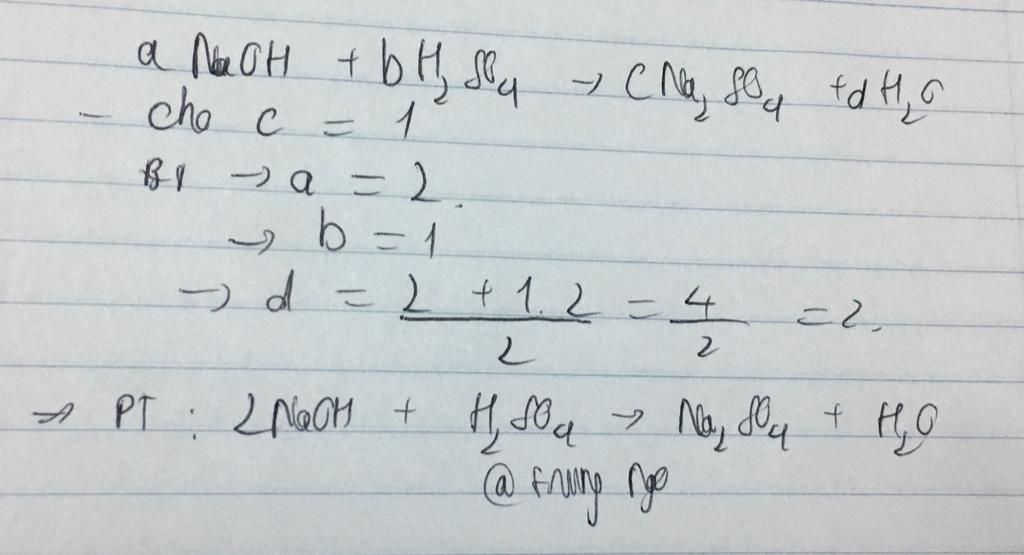 a NaOH + b H₂SO₄ → c Na₂SO₄ + d H₂O
- Cho c = 1
→ a = 2.
→ b = 1
→ d = \frac{2 + 1.2}{2} = \frac{4}{2} = 2.
⇒ PT : 2NaOH + H₂SO₄ → Na₂SO₄ + H₂O
@trung ngo